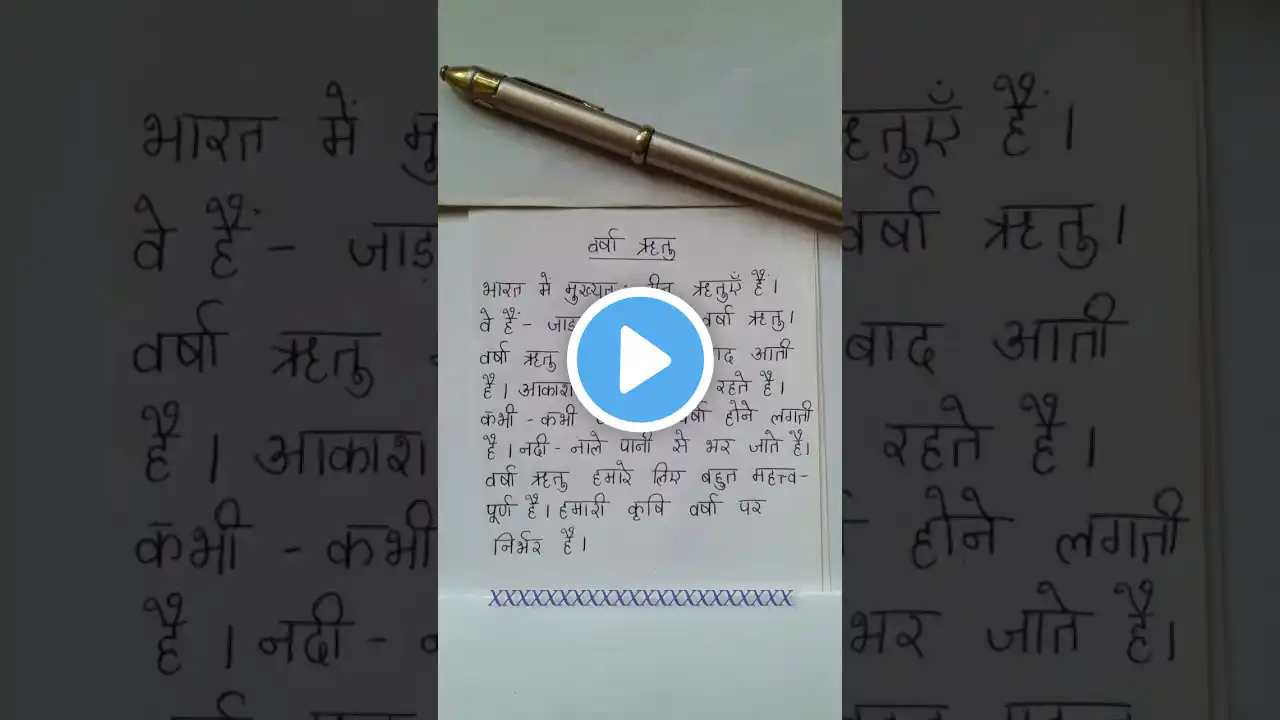 वर्षा ऋतु
भारत में मुख्यतः तीन ऋतुएँ हैं।
वे हैं - वर्षा ऋतु।
वर्षा ऋतु बाद आती
है। आकाश रहते है।
कभी - कभी वर्षा होने लगती
है। नदी - नाले पानी से भर जाते है।
वर्षा ऋतु हमारे लिए बहुत महत्त्व-
पूर्ण है। हमारी कृषि वर्षा पर
निर्भर है।
XXXXXXXXXXXXXXXXXXXXXX